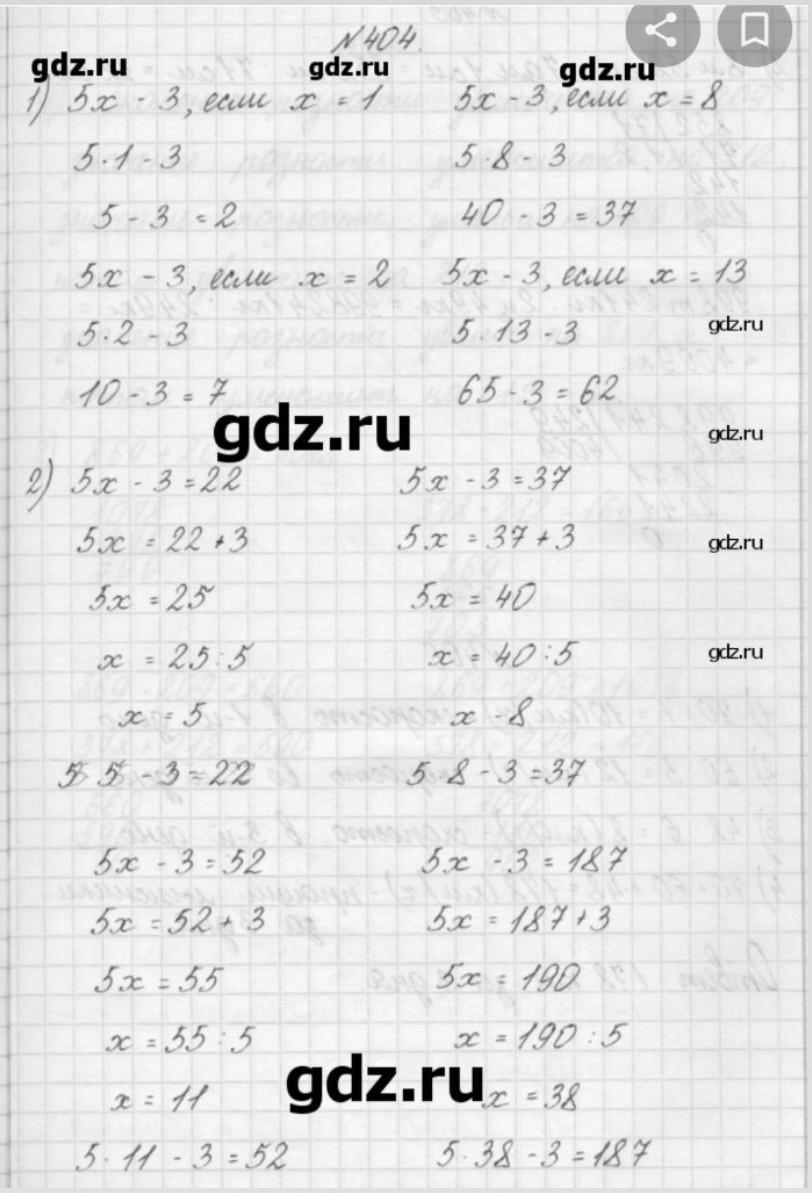 №404.
gdz.ru gdz.ru gdz.ru
1) 5x - 3, если x = 1 5x - 3, если x = 8
5·1 - 3 5·8 - 3
5 - 3 = 2 40 - 3 = 37
5x - 3, если x = 2 5x - 3, если x = 13
5·2 - 3 5 13 - 3 gdz.ru
10 - 3 = 7 65 - 3 = 62
gdz.ru gdz.ru
2) 5x - 3 = 22 5x - 3 = 37
5x = 22 + 3 5x = 37 + 3 gdz.ru
5x = 25 5x = 40
x = 25 : 5 x = 40 : 5 gdz.ru
x = 5 x - 8
5 5 - 3 = 22 5 8 - 3 = 37
5x - 3 = 52 5x - 3 = 187
5x = 52 + 3 5x = 187 + 3
5x = 55 5x = 190
x = 55 : 5 x = 190 : 5
gdz.ru
x = 11 x = 38
5·11 - 3 = 52 5·38 - 3 = 187